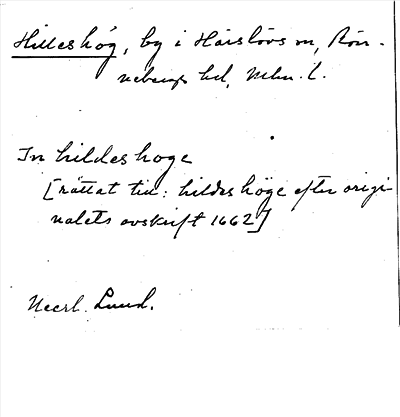 Hilleshög, by i Härslövs sn, Rön-
nebergs hd, Mlm. l.
In hildeshoge
[rättat till: hildes höge efter origi-
nalets avskrift 1662]
Neerl. Lund.